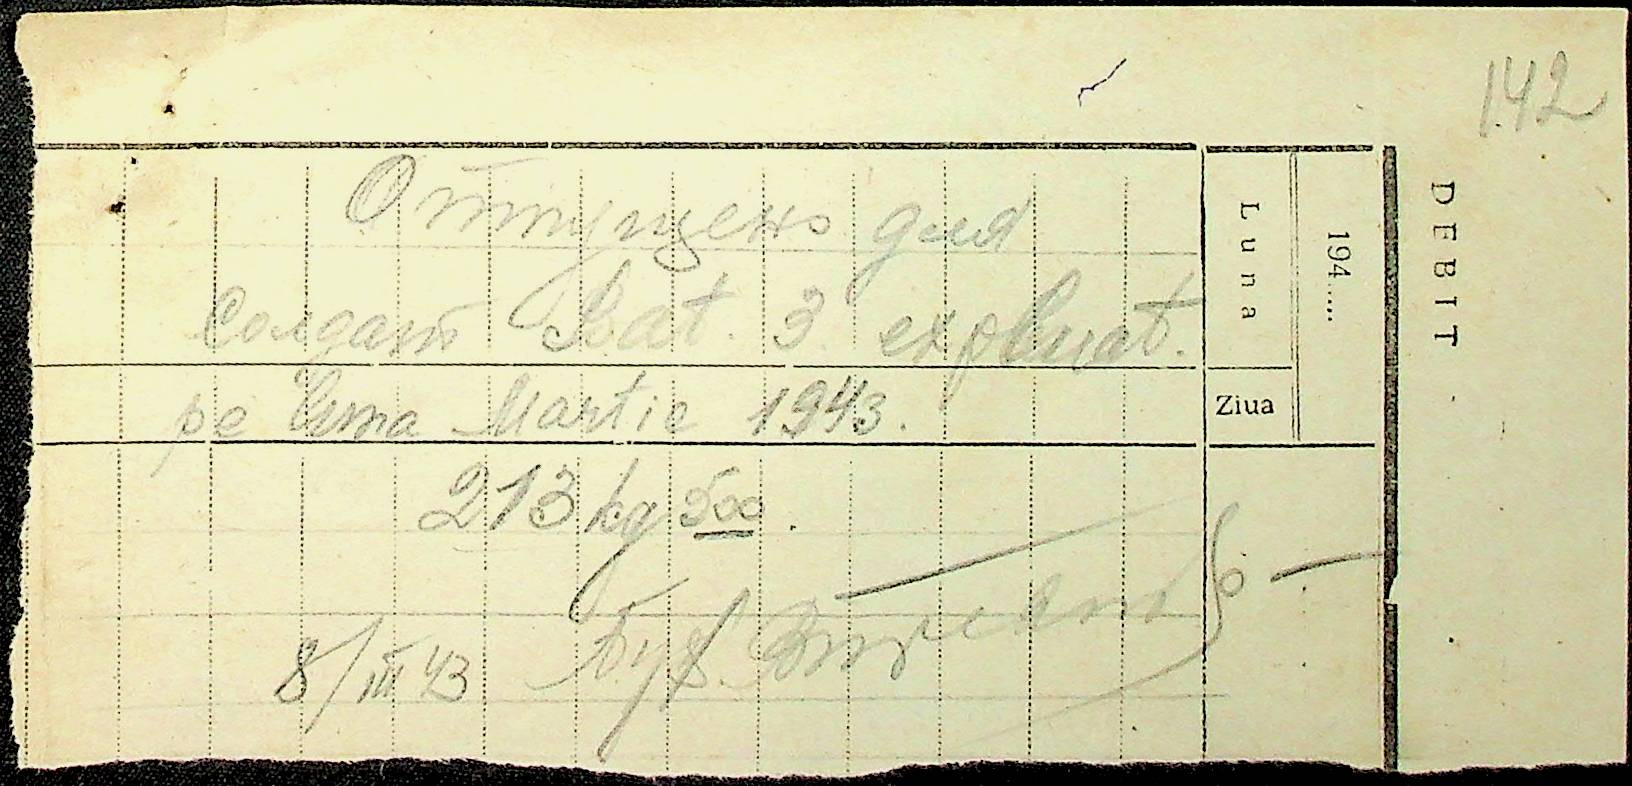 142
DEBIT
194....
Luna
Ziua
Отпущено для
Солдат Bat. 3 exploat.
pe luna Martie 1943.
213 kg 500.
8/III 43